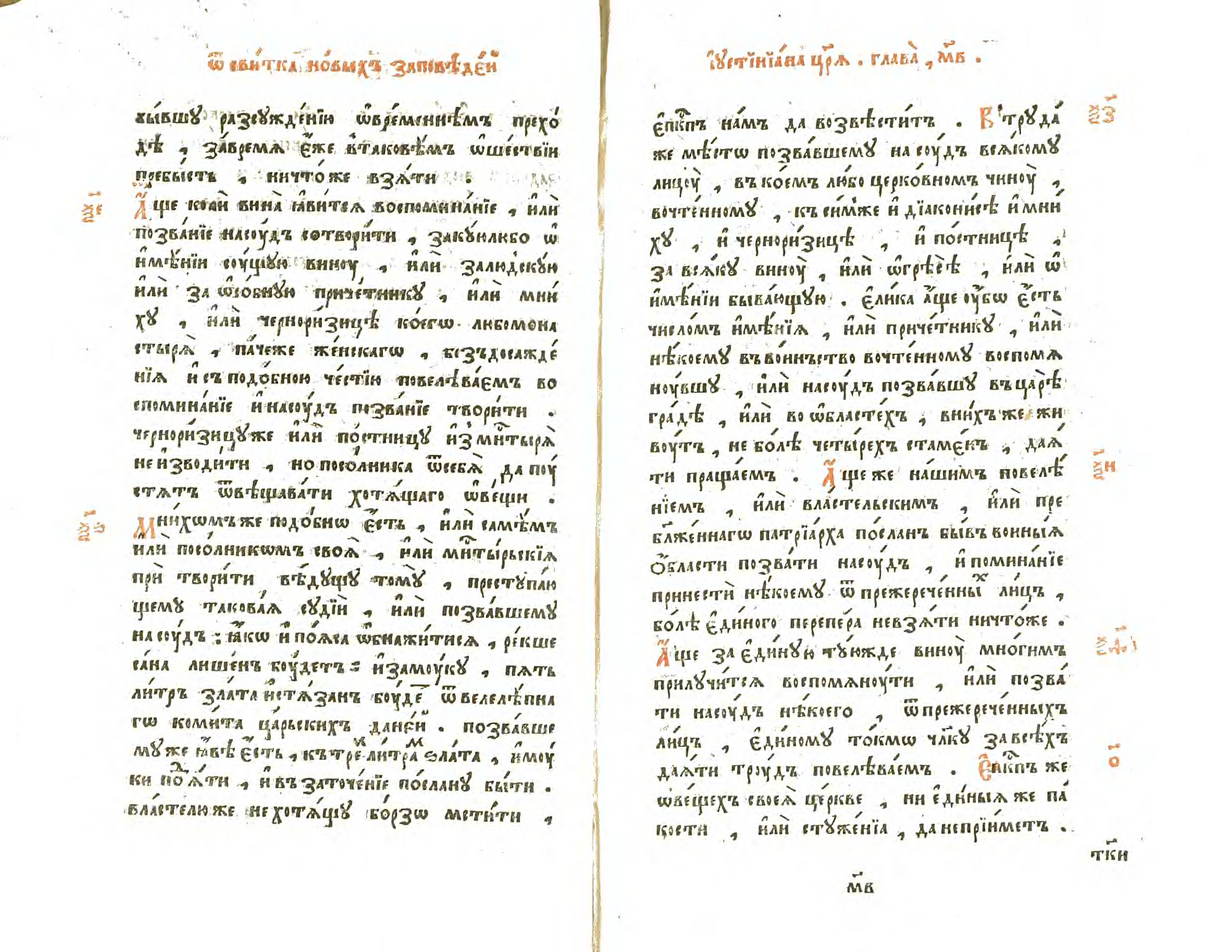 Ѿ свитка но́выхъ за́повѣдей
бывшу разсужде́нїю ѡвре́меннѣмъ прехо́
дѣ , за́время є҆́же вта́ковѣмъ ѡ҆ше́ствїи
пребы́сть , ничто́же взя́ти .
хз҃е
А҆́ще кѡа́й вина̀ ꙗ҆ви́тся воспомина́нїе , и҆лѝ
позва́нїе насꙋ́дъ сотвори́ти , закꙋюлибо ѡ҆
и҆мѣ́нїи сꙋ́щꙋю винꙋ̀ , и҆лѝ залюдскꙋ́ю
и҆лѝ за ѡ҆со́бнꙋю приче́тникꙋ , и҆лѝ мни́
хꙋ , и҆лѝ черноризицѣ ко́егѡ либомона
стырѧ̀ , па́чеже же́нскагѡ , безъдосажде́
нїѧ и҆съподо́бною че́стїю повелѣва́емъ во
спомина́нїе и҆насꙋ́дъ позва́нїе твори́ти .
черноризицꙋже и҆лѝ по́стницꙋ и҆змⷩ҇тырѧ̀
неи҆зводи́ти , но посо́лника ѿсебѧ̀ да пꙋ́
стѧтъ ѿвѣщава́ти хотѧ́щаго ѡ҆ве́щи .
Мни́хѡмъже подо́бнѡ є҆́сть , и҆лѝ самѣ́мъ
и҆лѝ посо́лникѡмъ своѧ̀ , и҆лѝ мⷩ҇ты́рьскїѧ
прѝ твори́ти вѣ́дꙋщꙋ томꙋ̀ , престꙋпа́ю
щемꙋ такова́ѧ сꙋдїѝ , и҆лѝ позва́вшемꙋ
насꙋ́дъ : ꙗ҆́кѡ и҆ по́ѧса ѡ҆бнажи́тисѧ , ре́кше
са́на лише́нъ бꙋ́детъ : и҆замꙋ́кꙋ , пѧть
ли́тръ зла́та и҆стѧ́занъ бꙋ́де ѿ велелѣ́пна
гѡ коми́та ца́рьскихъ да́ней . позва́вше
мꙋже ꙗ҆́вѣ є҆́сть , кътре ли́трамъ зла́та , и҆мꙋ́
ки поѧ́ти , и҆въ заточе́нїе по́сланꙋ бы́ти .
вла́стелюже нехотѧ́щꙋ бо́рзѡ мсти́ти ,
І҆ꙋстїнїа́на цр҃ѧ . глава̀ , м҃в .
є҆пⷭ҇кпъ на́мъ да возвѣсти́тъ . В трꙋда́
же мѣ́стѡ позва́вшемꙋ насꙋ́дъ всѧ́комꙋ
лицꙋ̀ , въ ко́емъ любо церко́вномъ чинꙋ̀ ,
вочте́нномꙋ , къ си́мже и҆ дїа́конисѣ и҆ мни́
хꙋ , и҆ черноризицѣ , и҆ по́стницѣ ,
за всѧ́кꙋ винꙋ̀ , и҆лѝ ѡ҆грѣ́сѣ , и҆лѝ ѡ҆
и҆мѣ́нїи быва́ющꙋю . Є҆ли́ка а҆́ще ᲂу҆́бѡ є҆́сть
число́мъ и҆мѣ́нїѧ , и҆лѝ приче́тникꙋ , и҆лѝ
нѣ́коемꙋ въво́инъство вочте́нномꙋ воспомѧ
нꙋ́вшꙋ , и҆лѝ насꙋ́дъ позва́вшꙋ въца́рѣ
гра́дѣ , и҆лѝ во ѡ҆́бластехъ , вни́хъже жи
вꙋ́тъ , не бо́лѣ четы́рехъ стаме́нъ , даѧ́
ти праща́емъ . А҆́ще же на́шимъ повелѣ́
нїемъ , и҆лѝ вла́стельскимъ , и҆лѝ пре
блаже́ннагѡ патрїа́рха по́сланъ бы́въ во ины́ѧ
ѻ҆́бласти позва́ти насꙋ́дъ , и҆ помина́нїе
принестѝ нѣ́коемꙋ ѿ прежерече́нныхъ ли́цъ ,
бо́лѣ є҆ди́ного перепе́ра невзѧ́ти ничто́же .
А҆́ще за є҆ди́нꙋю тꙋ́южде винꙋ̀ мно́гимъ
прилꙋчи́тсѧ воспомѧнꙋ́ти , и҆лѝ позва́
ти насꙋ́дъ нѣ́коего , ѿпрежерече́нныхъ
ли́цъ , є҆ди́номꙋ то́кмѡ чл҃кꙋ завсѣ́хъ
даѧ́ти трꙋ́дъ повелѣва́емъ . Є҆пⷭ҇кпъ же
ѡ҆ве́щехъ своеѧ̀ це́ркве , ни є҆ди́ныѧ же па́
кости , и҆лѝ стꙋже́нїѧ , данепрїи́метъ .
о҃
тки
м҃в